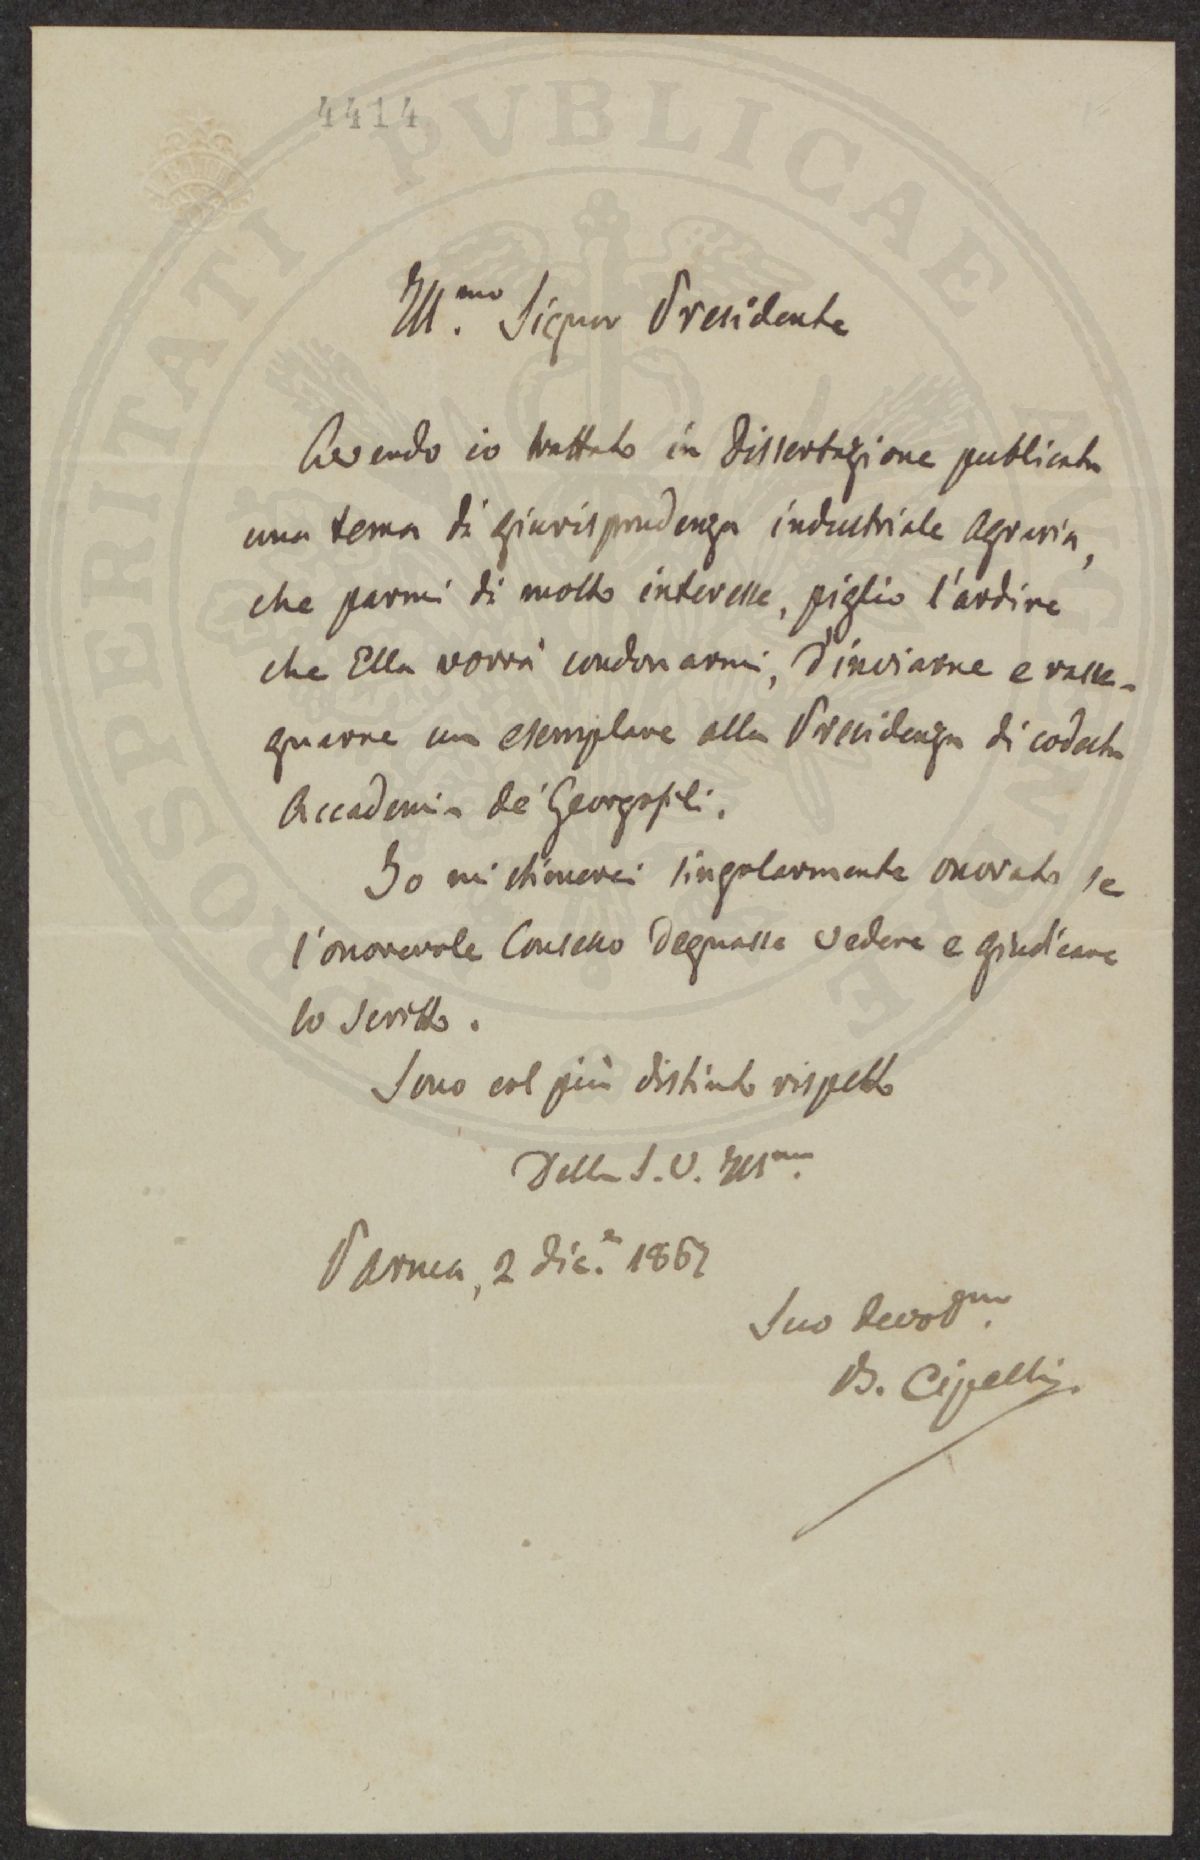 4414
PROSPERITATI PUBLICAE AUGENDAE
Ill.mo Signor Presidente
Avendo io trattato in Dissertazione publicata
una tema di giurisprudenza industriale agraria,
che parmi di molto interesse, piglio l'ardire
che Ella vorrà condonarmi, d'inviarne e rasse-
gnarne un esemplare alla Presidenza di codesta
Accademia de' Georgofili.
Io mi stimerei singolarmente onorato se
l'onorevole Consesso degnasse vedere e giudicare
lo scritto.
Sono col più distinto rispetto
Della S. V. Ill.ma
Parma, 2 dic.e 1867
Suo devot.mo
B. Cipelli